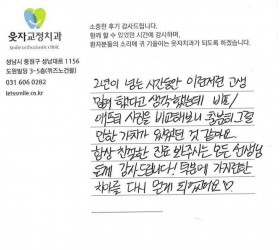 소중한 후기 감사드립니다.
함께 할 수 있었던 시간에 감사하며,
환자분들의 소리에 귀 기울이는 웃자치과가 되도록 하겠습니다.
웃자교정치과
smile orthodontic clinic
성남시 중원구 성남대로 1156
도원빌딩 3~5층(퀴즈노건물)
031 606 0282
letssmile.co.kr
2년이 넘는 시간동안 이런저런 고생
많이 했다고 생각했는데 비포/
애프터 사진을 비교해보니 충분히 그럴
만한 가치가 있었던 것 같아요.
항상 친절한 진료 봐주시는 모든 선생님
들께 감사드립니다! 덕분에 가지런한
치아를 다시 얻게 되었어요♡